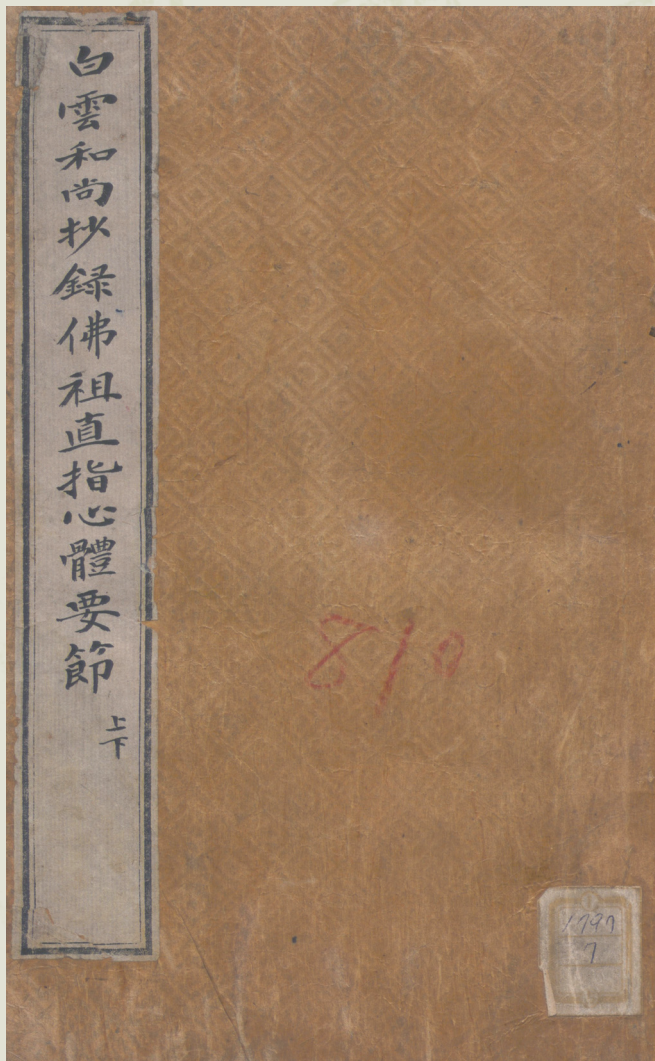 白雲和尚抄録佛祖直指心體要節
上下
810
1797
7